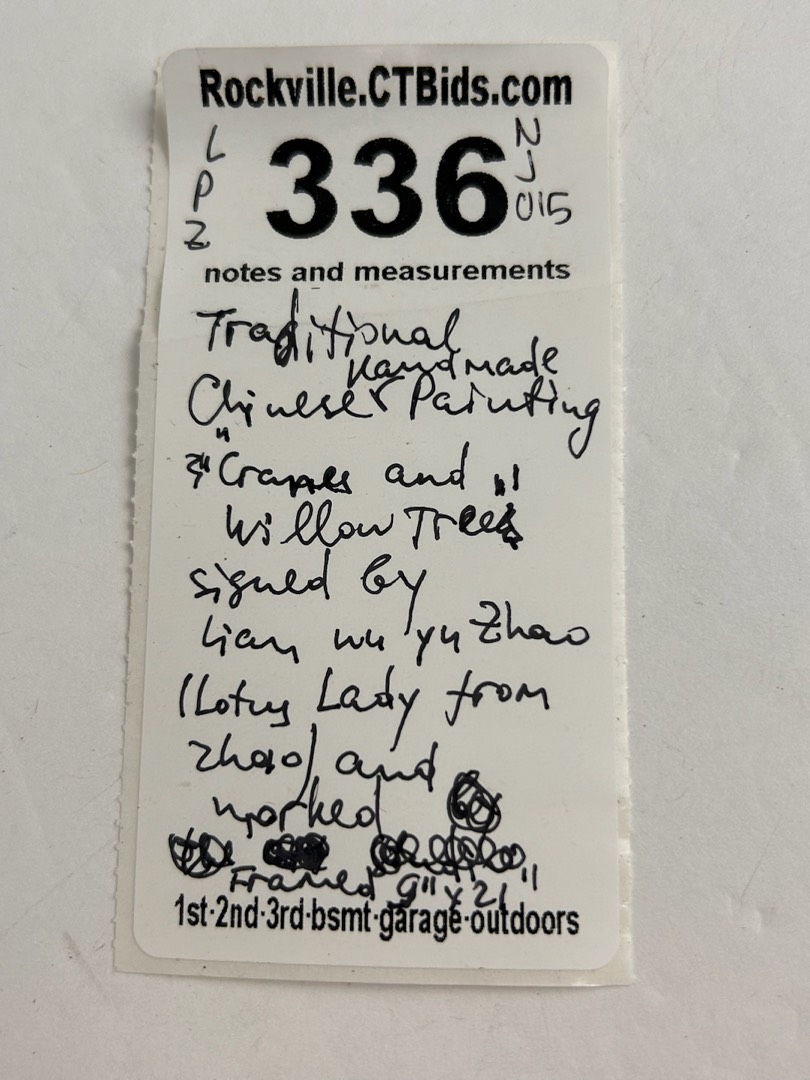 Rockville.CTBids.com
L P Z
336
N J 015
notes and measurements
Traditional
Handmade
Chinese Painting
"Cranes and "
Willow Trees
signed by
Lian wu yu Zhao
(Lotus Lady from
Zhao) and
marked
Framed 9" x 21"
1st·2nd·3rd·bsmt·garage·outdoors